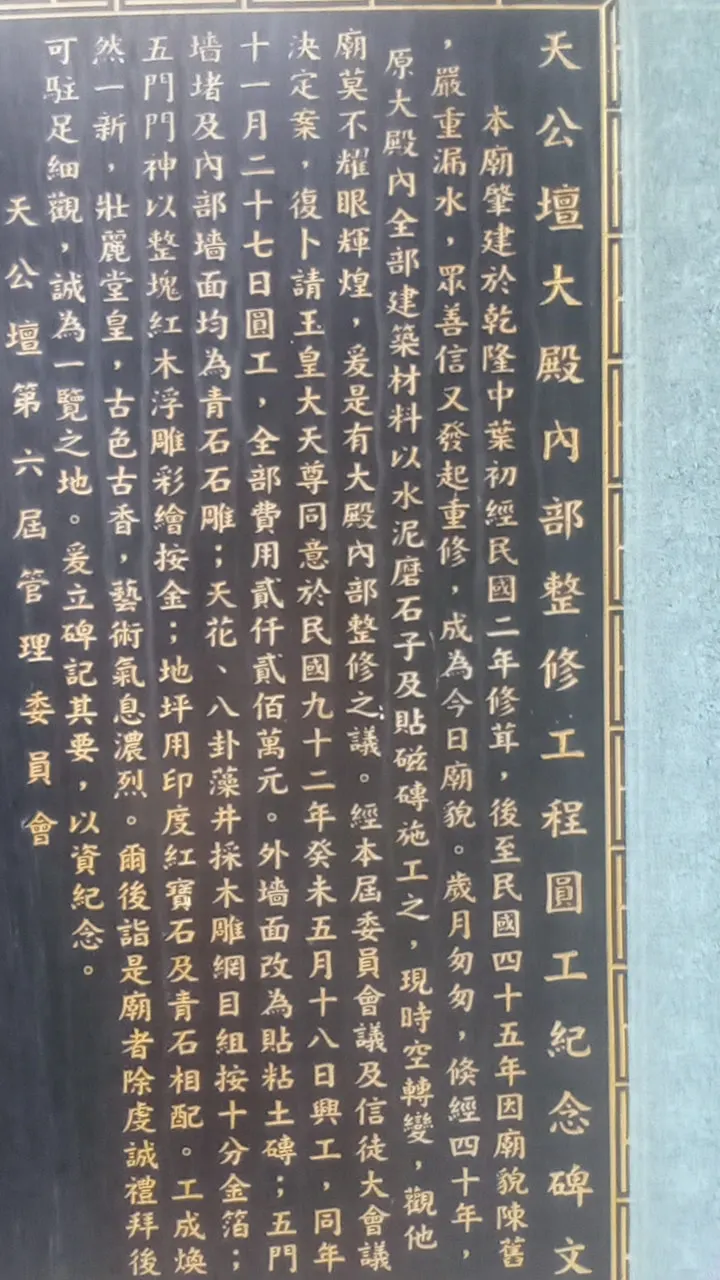 天公壇大殿內部整修工程圓工紀念碑文
本廟肇建於乾隆中葉初經民國二年修茸，後至民國四十五年因廟貌陳舊
，嚴重漏水，眾善信又發起重修，成為今日廟貌。歲月匆匆，倏經四十年，
原大殿內全部建築材料以水泥磨石子及貼磁磚施工之，現時空轉變，觀他
廟莫不耀眼輝煌，爰是有大殿內部整修之議。經本屆委員會議及信徒大會議
決定案，復卜請玉皇大天尊同意於民國九十二年癸未五月十八日興工，同年
十一月二十七日圓工，全部費用貳仟貳佰萬元。外墻面改為貼粘土磚；五門
墻堵及內部墻面均為青石石雕；天花、八卦藻井採木雕網目組按十分金箔；
五門門神以整塊紅木浮雕彩繪按金；地坪用印度紅寶石及青石相配。工成煥
然一新，壯麗堂皇，古色古香，藝術氣息濃烈。爾後詣是廟者除虔誠禮拜後
可駐足細觀，誠為一覽之地。爰立碑記其要，以資紀念。
天公壇第六屆管理委員會